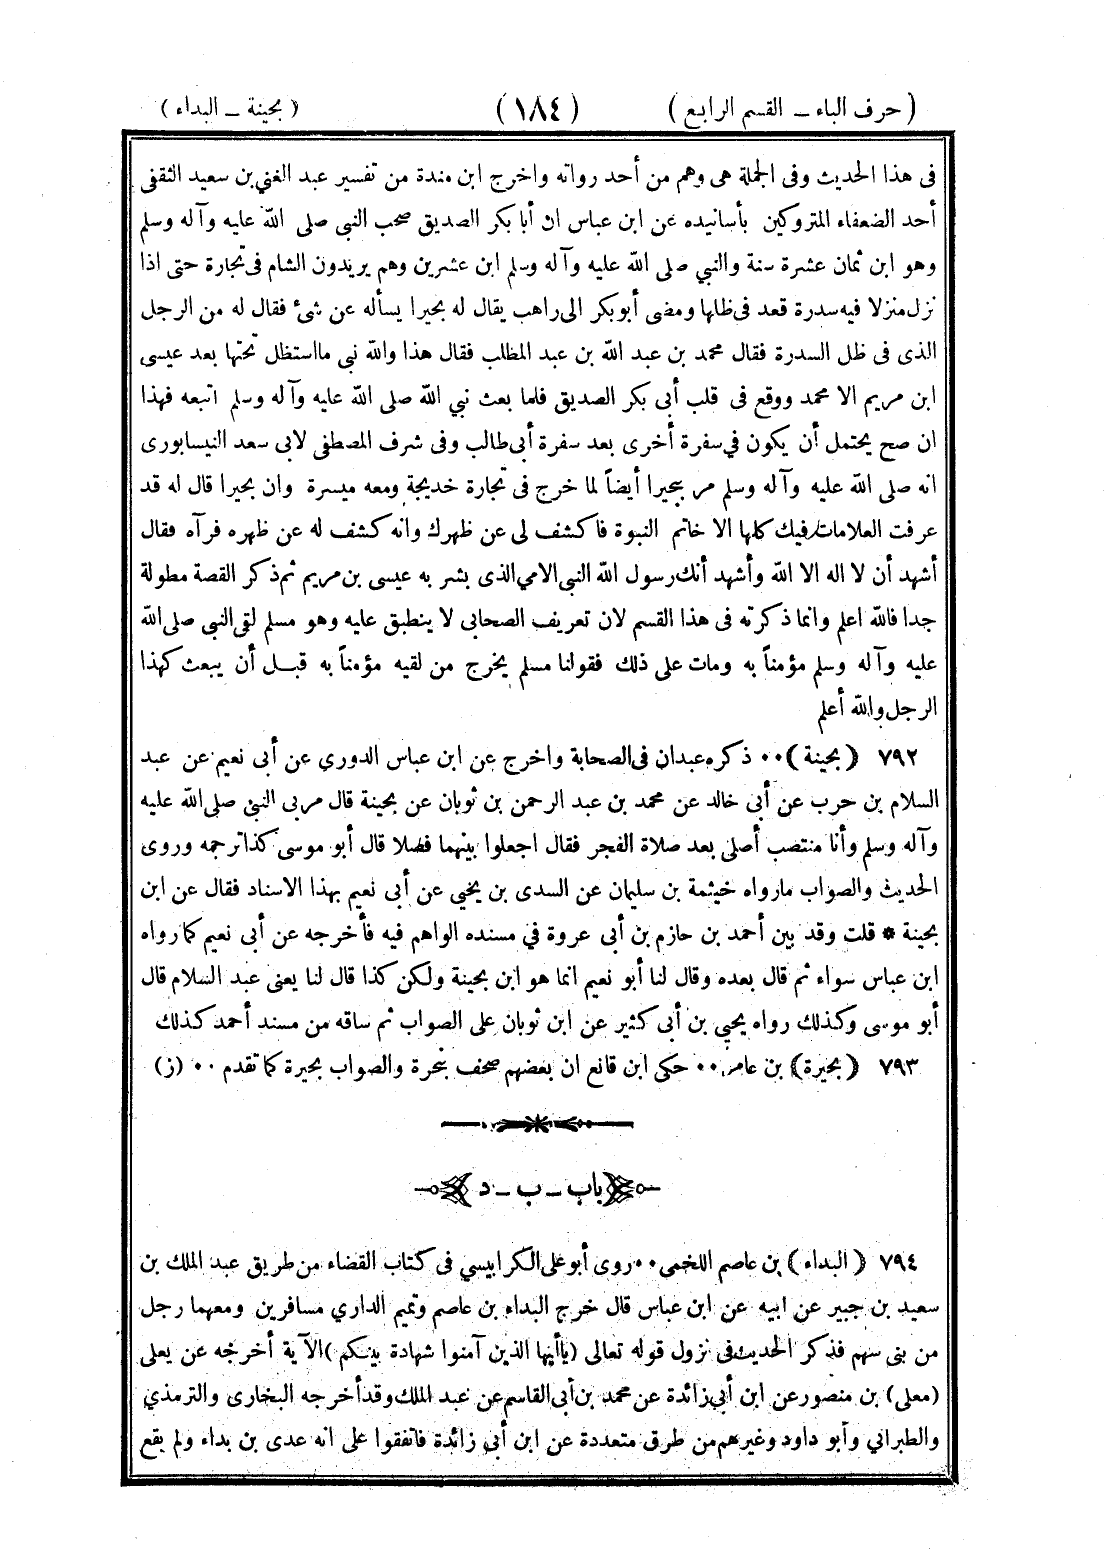 (حرف الباء ــ القسم الرابع) (١٨٤) (بحينة ــ البداء)
فى هذا الحديث وفى الجملة هى وهم من أحد رواته واخرج ابن مندة من تفسير عبد الغني بن سعيد الثقفى
أحد الضعفاء المتروكين بأسانيده عن ابن عباس ان أبا بكر الصديق صحب النبي صلى الله عليه وآله وسلم
وهو ابن ثمان عشرة سنة والنبي صلى الله عليه وآله وسلم ابن عشرين وهم يريدون الشام فى تجارة حتى اذا
نزل منزلا فيه سدرة قعد فى ظلها ومضى أبو بكر الى راهب يقال له بحيرا يسأله عن شئ فقال له من الرجل
الذى فى ظل السدرة فقال محمد بن عبد الله بن عبد المطلب فقال هذا والله نبي ما استظل تحتها بعد عيسى
ابن مريم الا محمد ووقع فى قلب أبى بكر الصديق فلما بعث نبي الله صلى الله عليه وآله وسلم اتبعه فهذا
ان صح يحتمل أن يكون في سفرة أخرى بعد سفرة أبى طالب وفى شرف المصطفى لابى سعد النيسابورى
انه صلى الله عليه وآله وسلم مر ببحيرا أيضاً لما خرج فى تجارة خديجة ومعه ميسرة وان بحيرا قال له قد
عرفت العلامات فيك كلها الا خاتم النبوة فاكشف لى عن ظهرك وانه كشف له عن ظهره فرآه فقال
أشهد أن لا اله الا الله وأشهد أنك رسول الله النبى الامي الذى بشر به عيسى بن مريم ثم ذكر القصة مطولة
جدا فالله اعلم وانما ذكرته فى هذا القسم لان تعريف الصحابى لا ينطبق عليه وهو مسلم لقى النبى صلى الله
عليه وآله وسلم مؤمناً به ومات على ذلك فقولنا مسلم يخرج من لقيه مؤمناً به قبل أن يبعث كهذا
الرجل والله أعلم
٧٩٢ (بحينة) ٠٠ ذكره عبدان فى الصحابة واخرج عن ابن عباس الدوري عن أبى نعيم عن عبد
السلام بن حرب عن أبى خالد عن محمد بن عبد الرحمن بن ثوبان عن بحينة قال مر بى النبي صلى الله عليه
وآله وسلم وأنا منتصب أصلى بعد صلاة الفجر فقال اجعلوا بينهما فصلا قال أبو موسى كذا ترجمه وروى
الحديث والصواب ما رواه خيثمة بن سليمان عن السدى بن يحيى عن أبى نعيم بهذا الاسناد فقال عن ابن
بحينة * قلت وقد بين أحمد بن حازم بن أبى عروة في مسنده الواهم فيه فأخرجه عن أبى نعيم كما رواه
ابن عباس سواء ثم قال بعده وقال لنا أبو نعيم انما هو ابن بحينة ولكن كذا قال لنا يعنى عبد السلام قال
أبو موسى وكذلك رواه يحيي بن أبى كثير عن ابن ثوبان على الصواب ثم ساقه من مسند أحمد كذلك
٧٩٣ (بحيرة) بن عامر ٠٠ حكى ابن قانع ان بعضهم صحف بحرة والصواب بحيرة كما تقدم ٠٠ (ز)
باب ــ ب ــ د
٧٩٤ (البداء) بن عاصم اللخمى ٠٠ روى أبو على الكرابيسي فى كتاب القضاء من طريق عبد الملك بن
سعيد بن جبير عن ابيه عن ابن عباس قال خرج البداء بن عاصم وتميم الداري مسافرين ومعهما رجل
من بنى سهم فذكر الحديث فى نزول قوله تعالى (ياأيها الذين آمنوا شهادة بينكم) الآية أخرجه عن يعلى
(معلى) بن منصور عن ابن أبي زائدة عن محمد بن أبى القاسم عن عبد الملك وقد أخرجه البخارى والترمذي
والطبراني وأبو داود وغيرهم من طرق متعددة عن ابن أبي زائدة فاتفقوا على انه عدى بن بداء ولم يقع